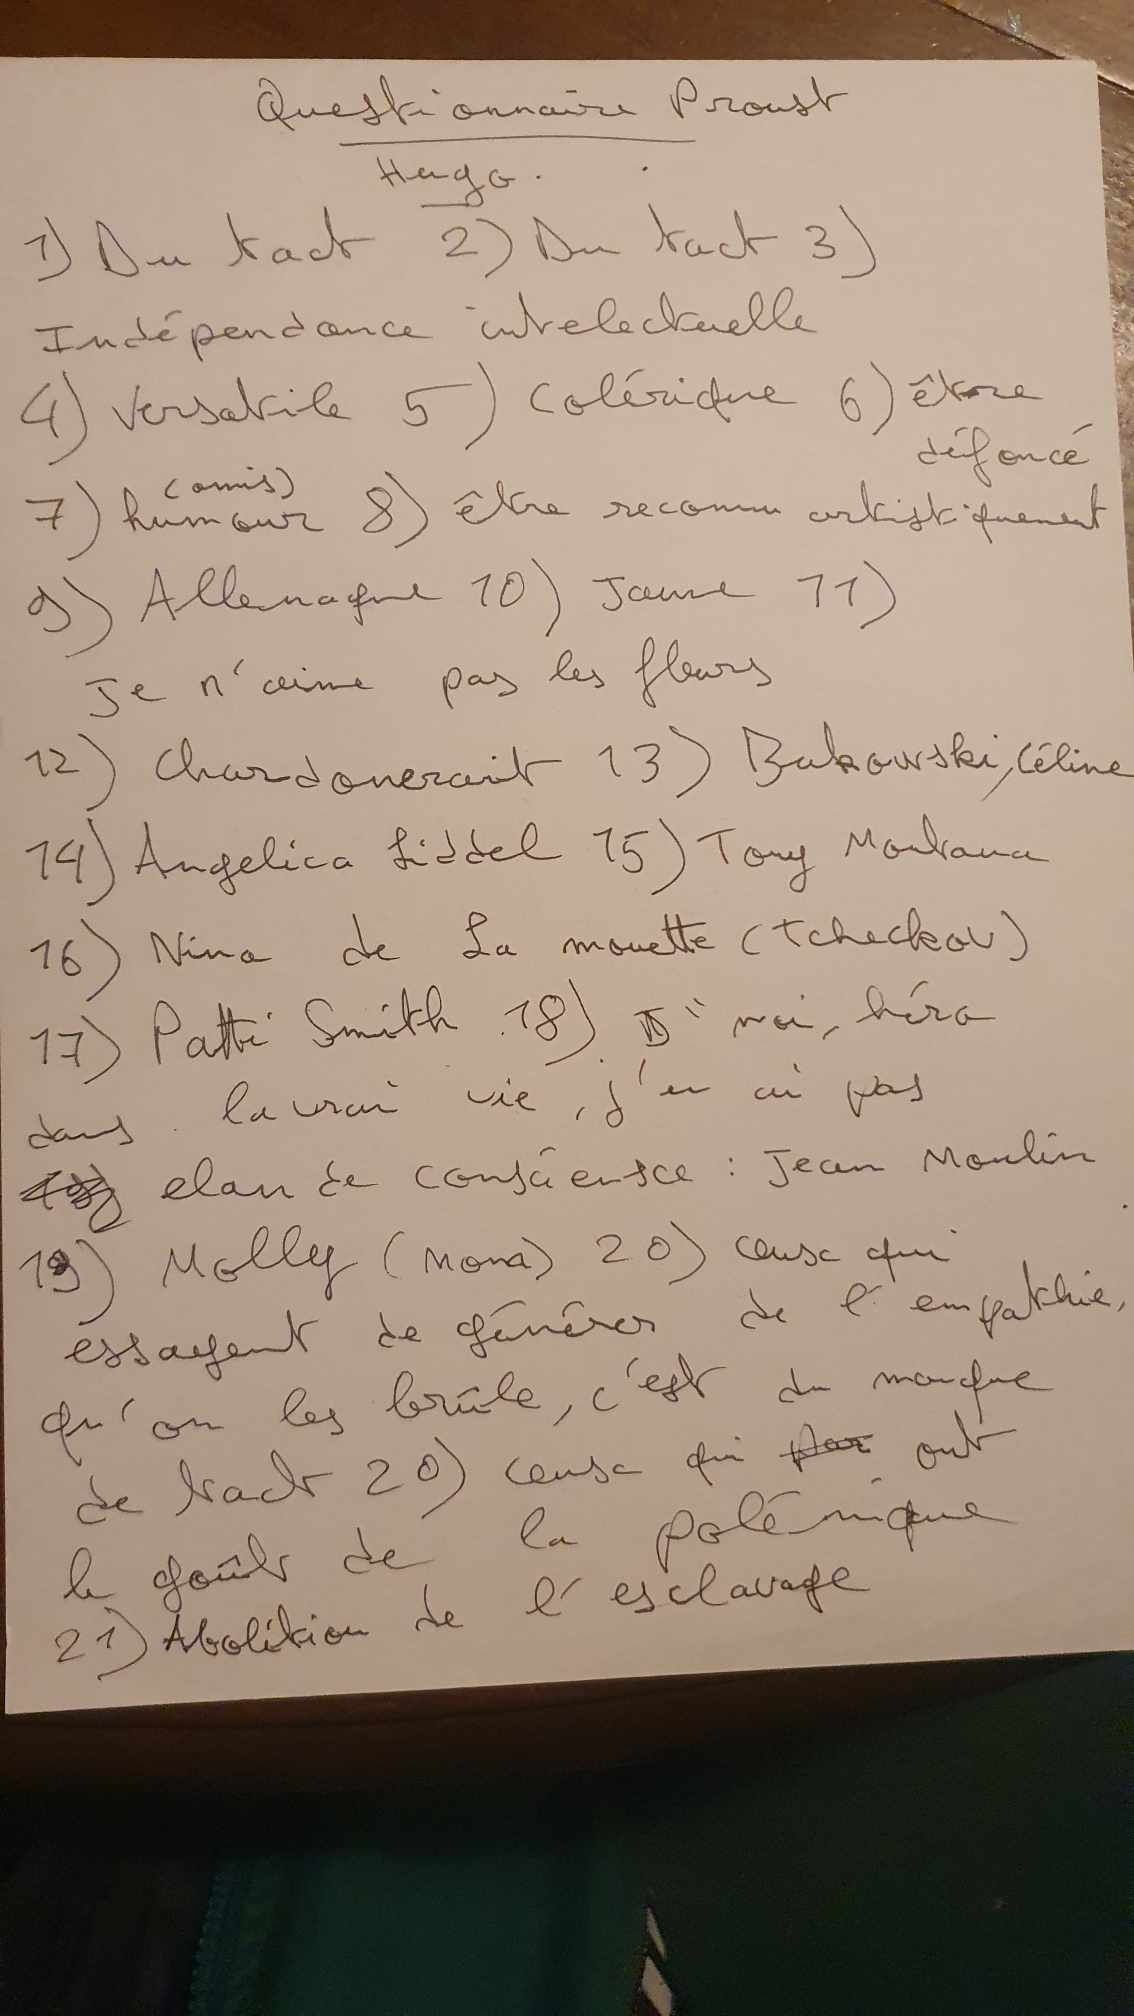 Questionnaire Proust
Hugo.
1) Du tact 2) Du tact 3)
Indépendance intelectuelle
4) Versatile 5) Colérique 6) être
défoncé
(amis)
7) humour 8) être reconnu artistiquement
9) Allemagne 10) Jaune 11)
Je n'aime pas les fleurs
12) Chardonerait 13) Bukowski, Céline
14) Angelica Liddel 15) Tony Montana
16) Nina de La mouette (Tcheckov)
17) Patti Smith 18) moi, héro
dans la vrai vie, j'en ai pas
elan de consciensce : Jean Moulin
19) Molly (Mona) 20) ceux qui
essayent de générer de l'empathie,
qu'on les brûle, c'est du manque
de tact 20) ceux qui ont
le goût de la polémique
21) Abolition de l'esclavage